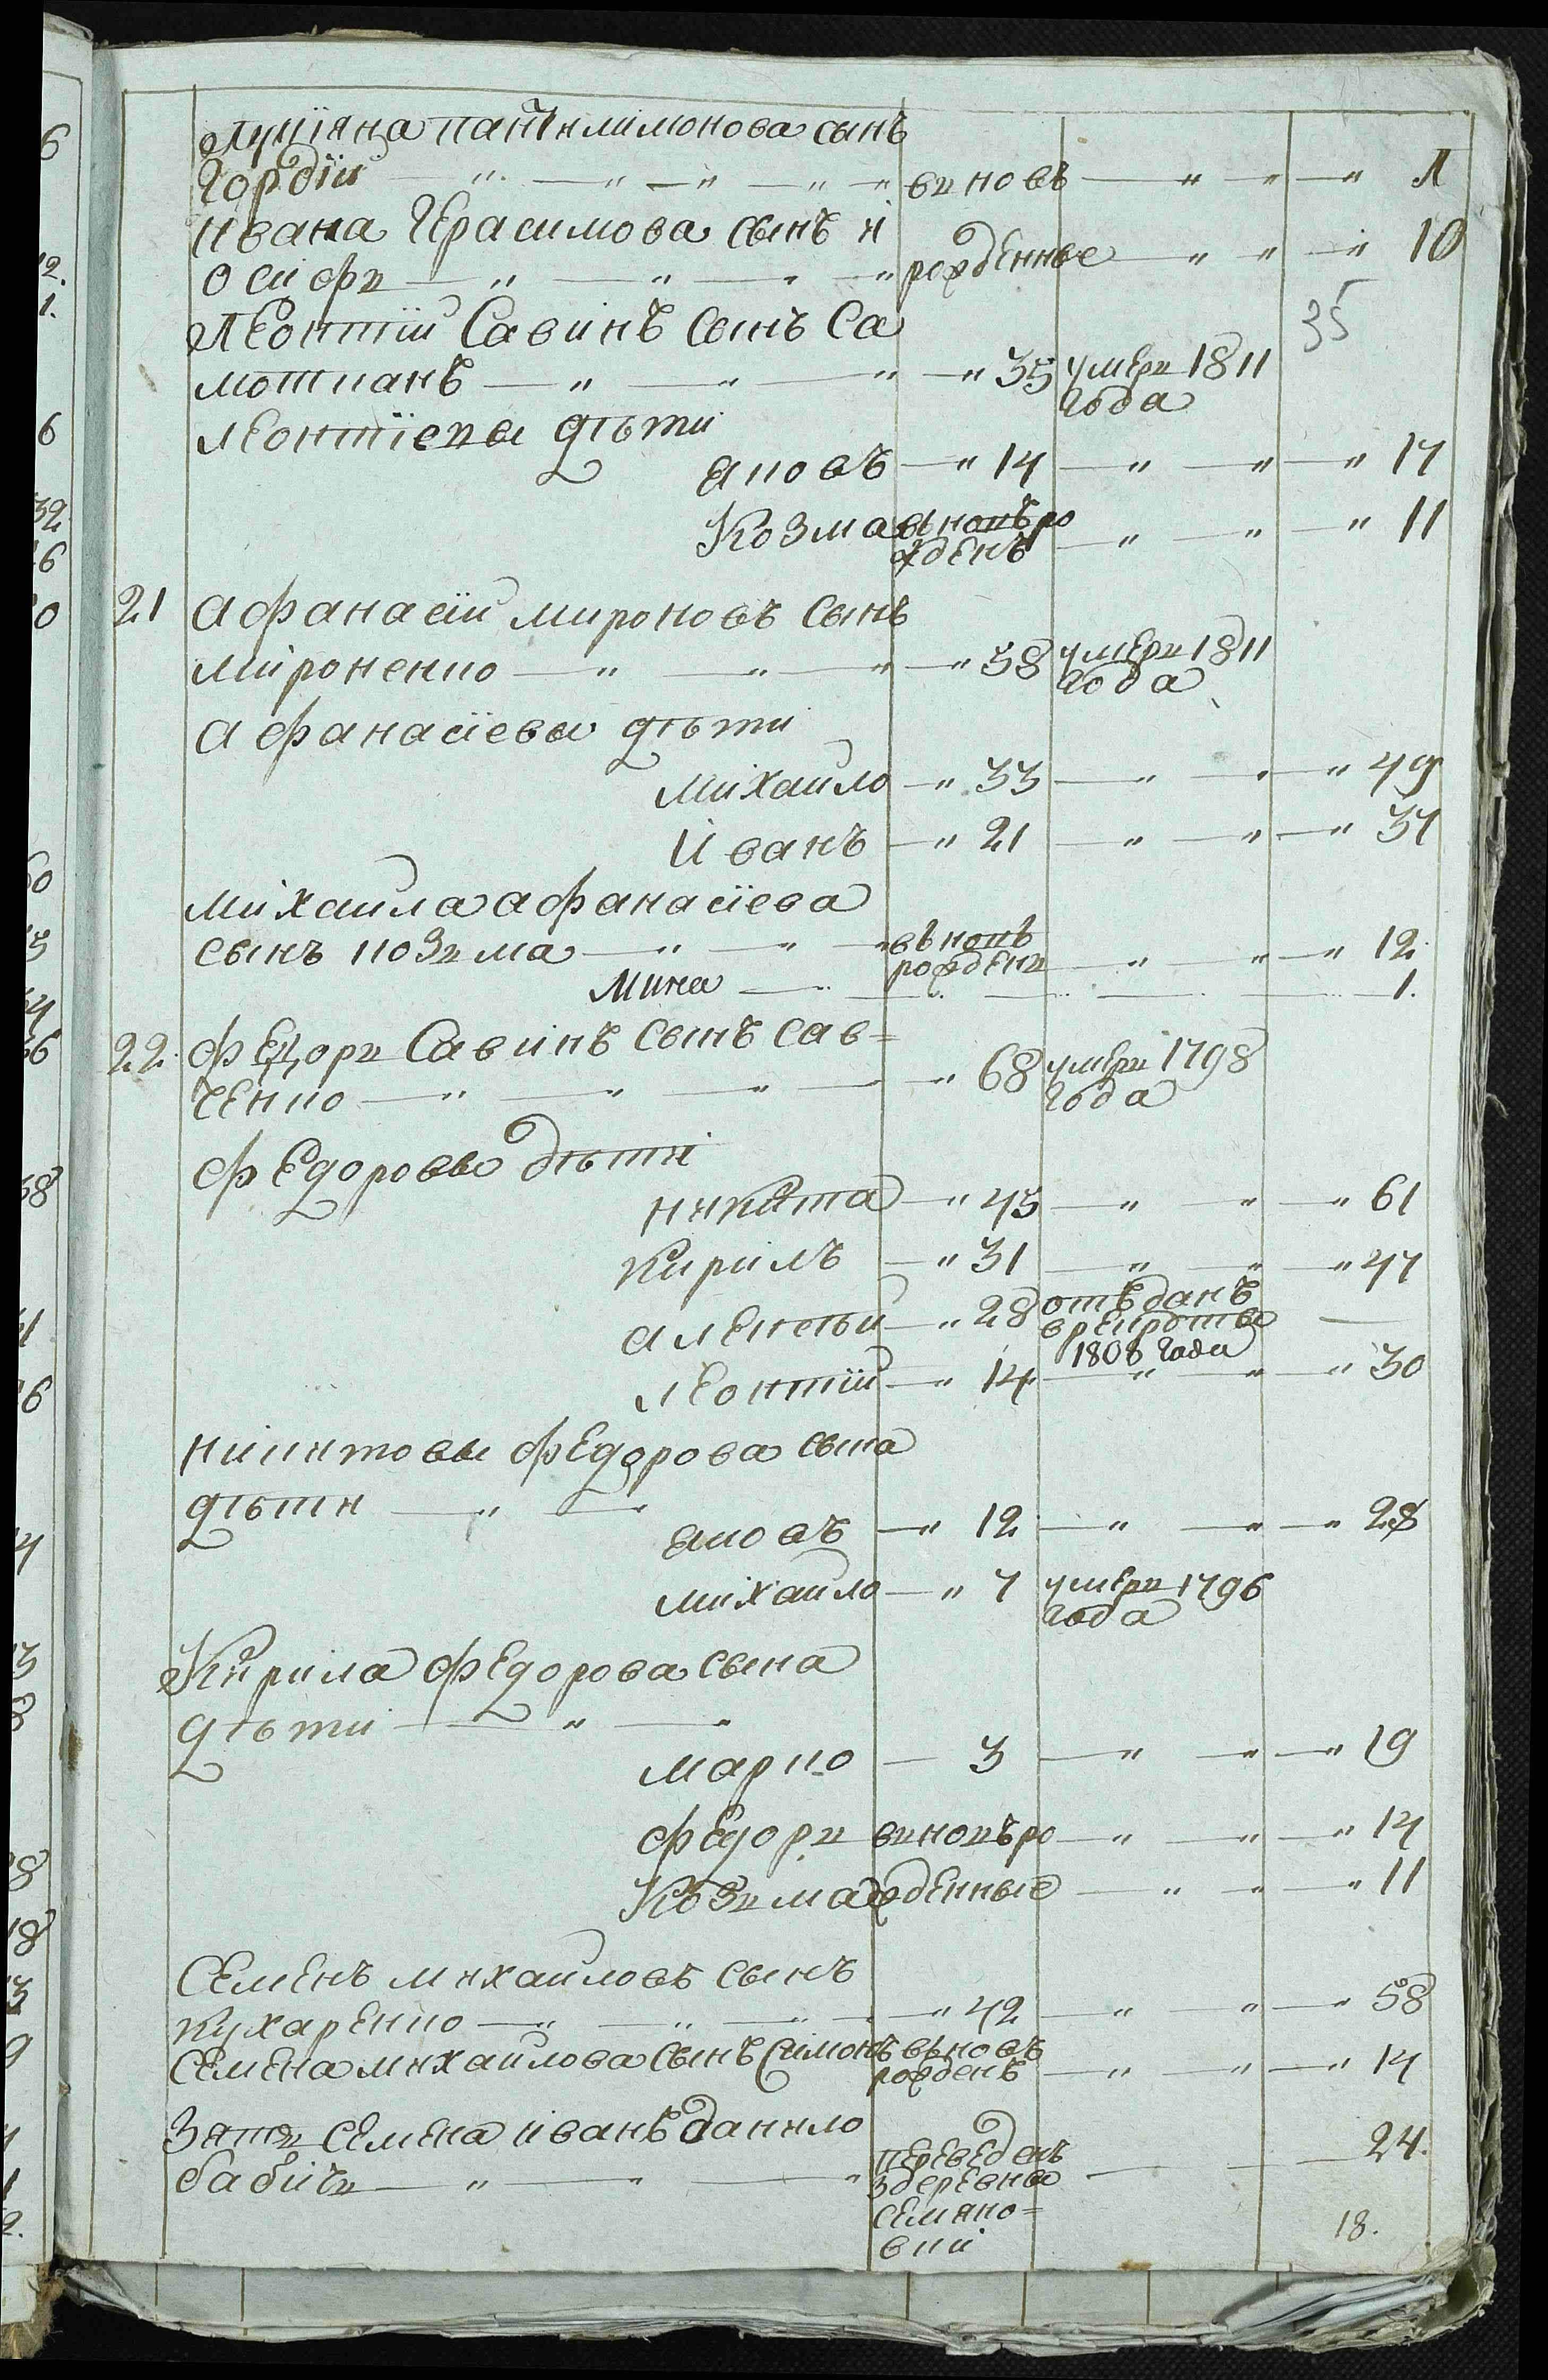 Лукіяна Пантилимонова сынъ
Гордій — " — " — " — " — " вновъ — " — " — " Л
Ивана Герасимова сынъ и
осифъ — " — " — " рожденные — " — " — " 10
35
Леонтій Савинъ сынъ Са
мотканъ — " — " — " — " 35 умеръ 1811
года
Леонтіевы дѣти
Яковъ — " 14 — " — " — " 17
Козма вновъ ро — " — " — " 11
жденъ
21 Афанасій Мироновъ сынъ
Мироненко — " — " — " — " 58 умеръ 1811
года
Афанасіевы дѣти
Михайло — " 33 — " — " — " 49
Иванъ — " 21 — " — " — " 37
Михайла Афанасіева
сынъ Козма — " — " — " вновъ
рожденъ — " — " — " 12
Мина — " — " — " — " 1.
22. Федоръ Савинъ сынъ Сав=
ченко — " — " — " — " 68 умеръ 1798
года
Федоровы дѣти
Никита — " 45 — " — " — " 61
Кирилъ — " 31 — " — " — " 47
Алексей — " 28 отъданъ —
в рекруты
1808 года
Леонтій — " 14 — " — " — " 30
Никитовы Федорова сына
дѣти — " —
Яковъ — " 12 — " — " — " 28
Михайло — " 7 умеръ 1796
года
Кирила Федорова сына
дѣти — " —
Марко — 3 — " — " — " 19
Федоръ вновъ ро — " — " — " 14
Козма жденные — " — " — " 11
Семенъ Михайловъ сынъ
Кухаренко — " — " — " — " 42 — " — " — " 58
Семена Михайлова сынъ Симонъ вновъ
рожденъ — " — " — " 14
Зять Семена Иванъ Данило
бабичъ — " — " — " переведенъ — — — 24.
з деревны
Семяно=
вки
18.